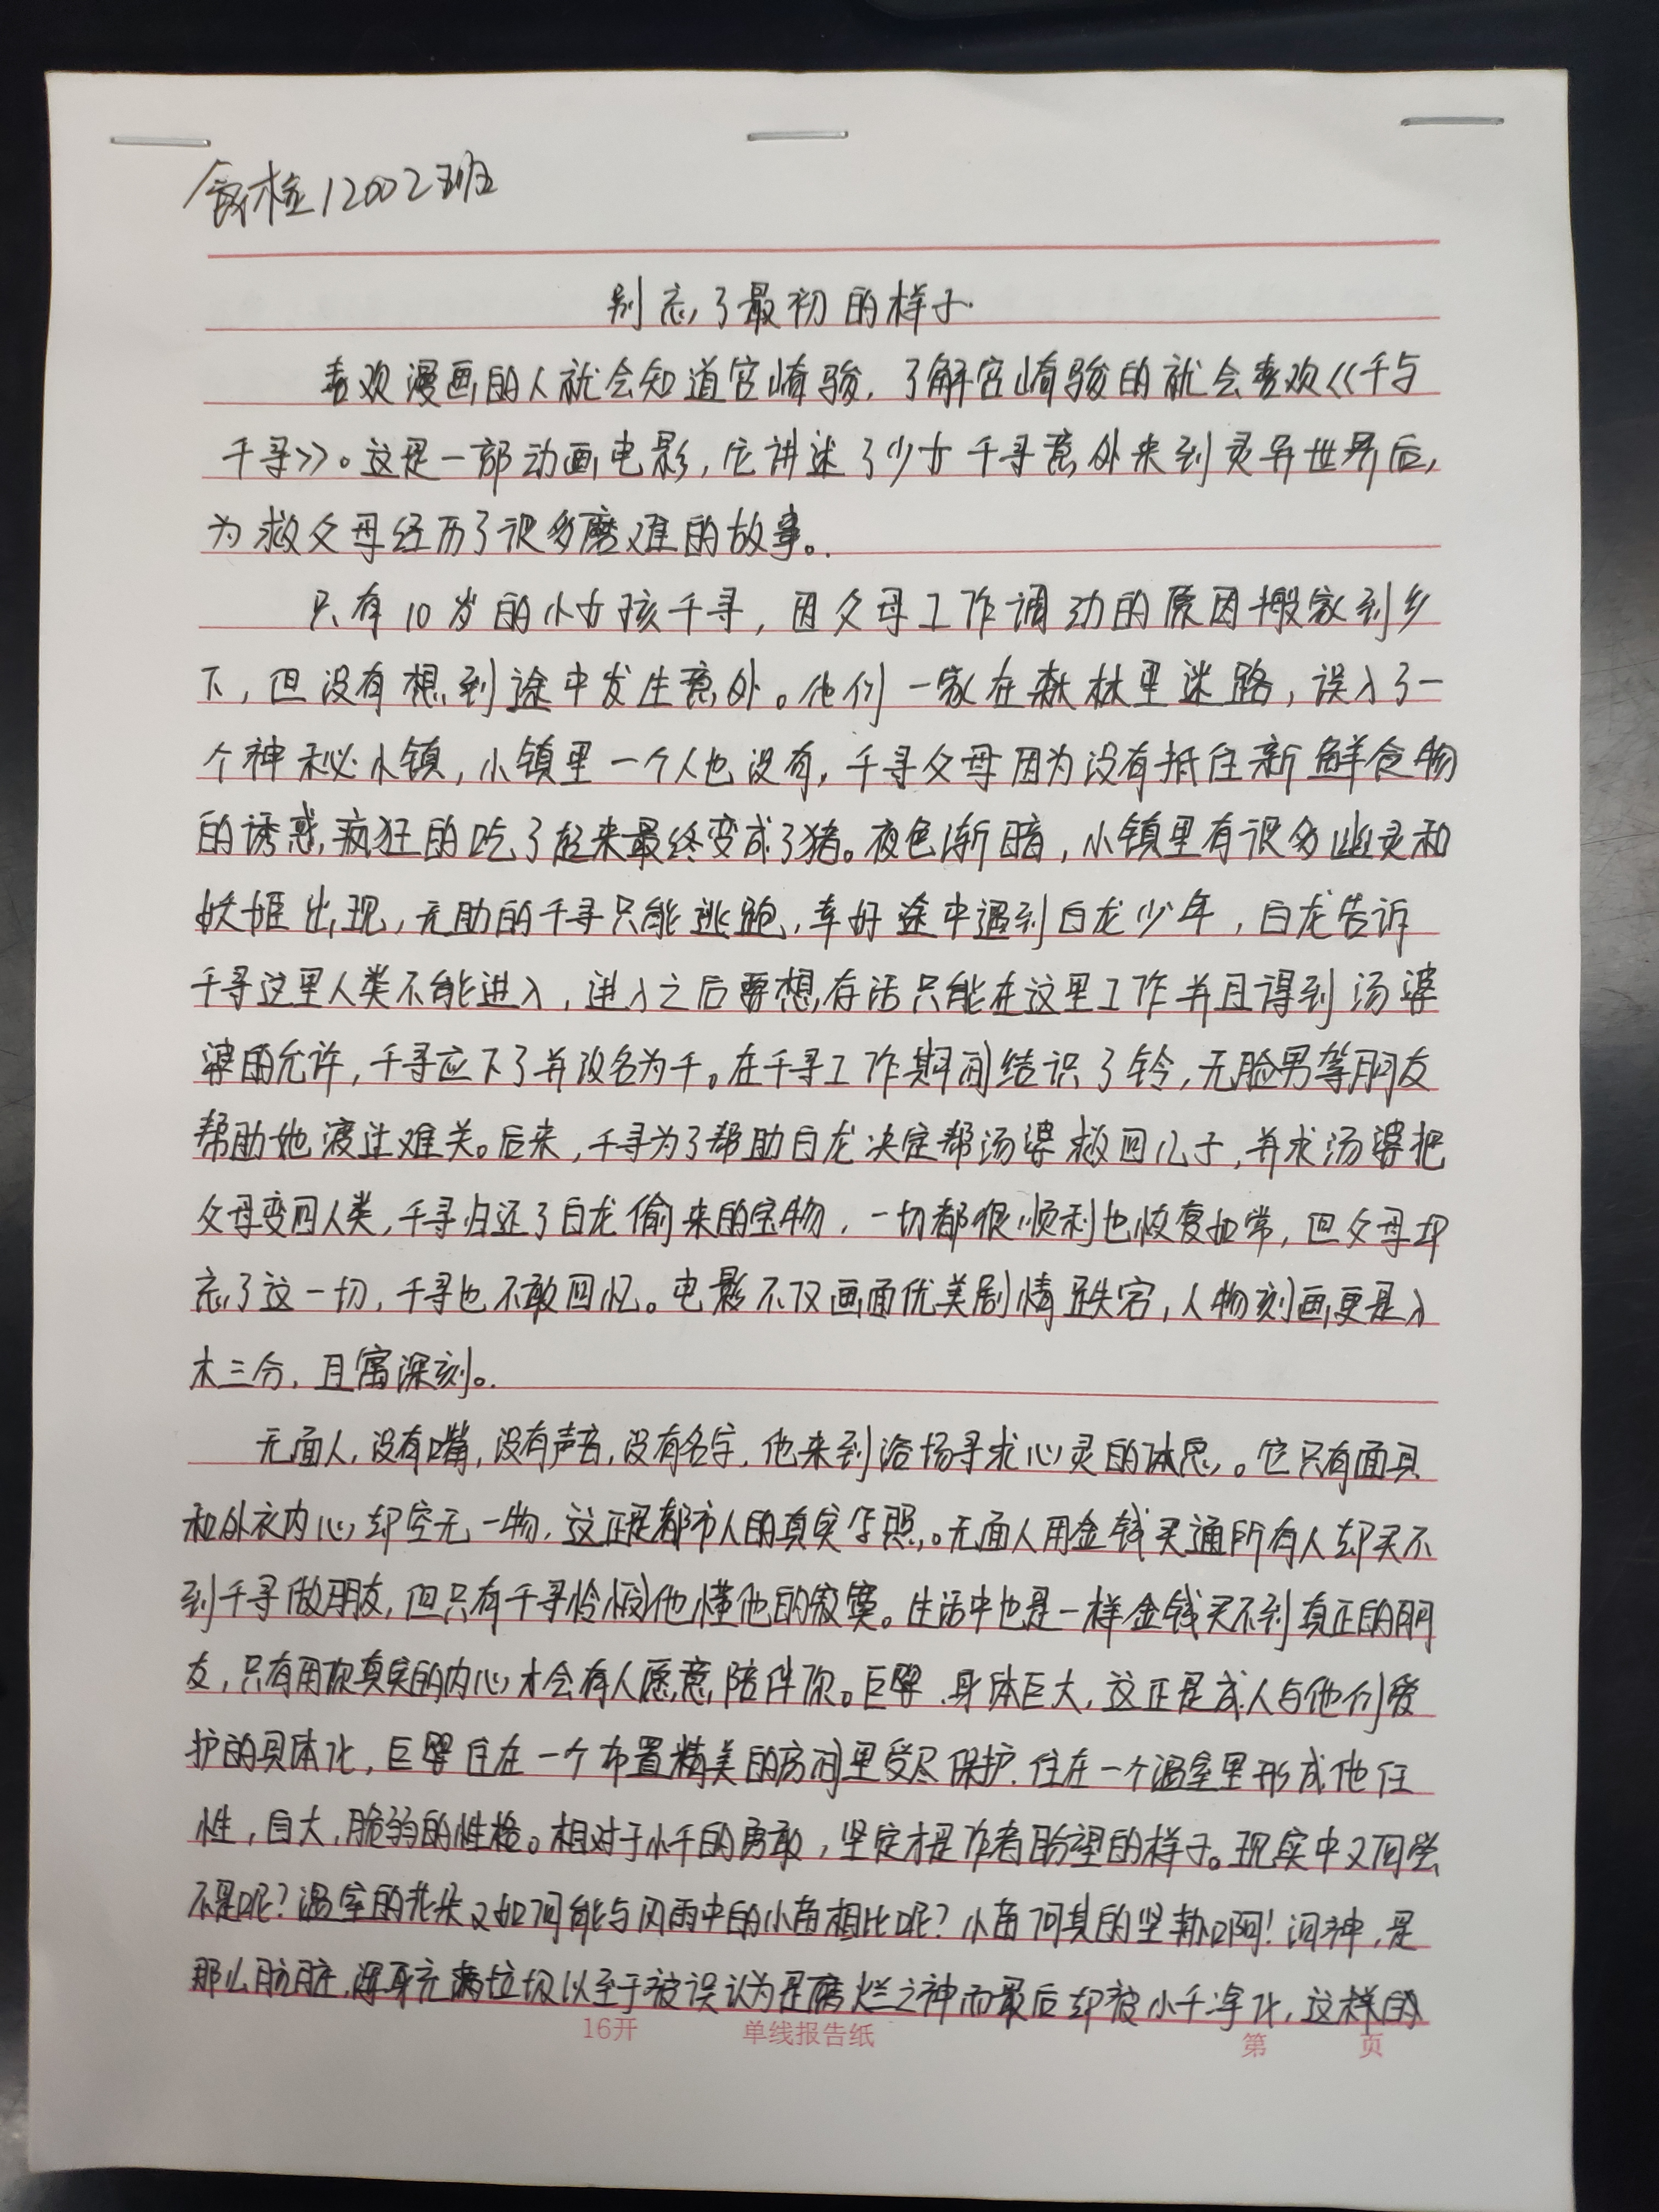 食检12002班
别忘了最初的样子
喜欢漫画的人就会知道宫崎骏，了解宫崎骏的就会喜欢《千与
千寻》。这是一部动画电影，它讲述了少女千寻意外来到灵异世界后，
为救父母经历了很多磨难的故事。
只有10岁的小女孩千寻，因父母工作调动的原因搬家到乡
下，但没有想到途中发生意外。他们一家在森林里迷路，误入了一
个神秘小镇，小镇里一个人也没有，千寻父母因为没有抵住新鲜食物
的诱惑，疯狂的吃了起来最终变成了猪。夜色渐暗，小镇里有很多幽灵和
妖姬出现，无助的千寻只能逃跑，幸好途中遇到白龙少年，白龙告诉
千寻这里人类不能进入，进入之后要想存活只能在这里工作并且得到汤婆
婆的允许，千寻应下了并改名为千。在千寻工作期间结识了铃，无脸男等朋友
帮助她渡过难关。后来，千寻为了帮助白龙决定帮汤婆救回儿子，并求汤婆把
父母变回人类，千寻归还了白龙偷来的宝物，一切都很顺利也恢复如常，但父母却
忘了这一切，千寻也不敢回忆。电影不仅画面优美剧情跌宕，人物刻画更是入
木三分，且寓深刻。
无面人，没有嘴，没有声音，没有名字，他来到浴场寻求心灵的休息。它只有面具
和外衣内心却空无一物，这正是都市人的真实写照。无面人用金钱买通所有人却买不
到千寻做朋友，但只有千寻怜悯他懂他的寂寞。生活中也是一样金钱买不到真正的朋
友，只有用你真实的内心才会有人愿意陪伴你。巨婴，身体巨大，这正是成人与他们爱
护的具体化，巨婴住在一个布置精美的房间里受尽保护，住在一个温室里形成他任
性，自大，脆弱的性格。相对于小千的勇敢，坚定才是作者盼望的样子。现实中又何尝
不是呢？温室的花朵又如何能与风雨中的小苗相比呢？小苗何其的坚韧啊！河神，是
那么肮脏，浑身充满垃圾以至于被误认为是腐烂之神而最后却被小千净化，这样的
16开 单线报告纸 第 页